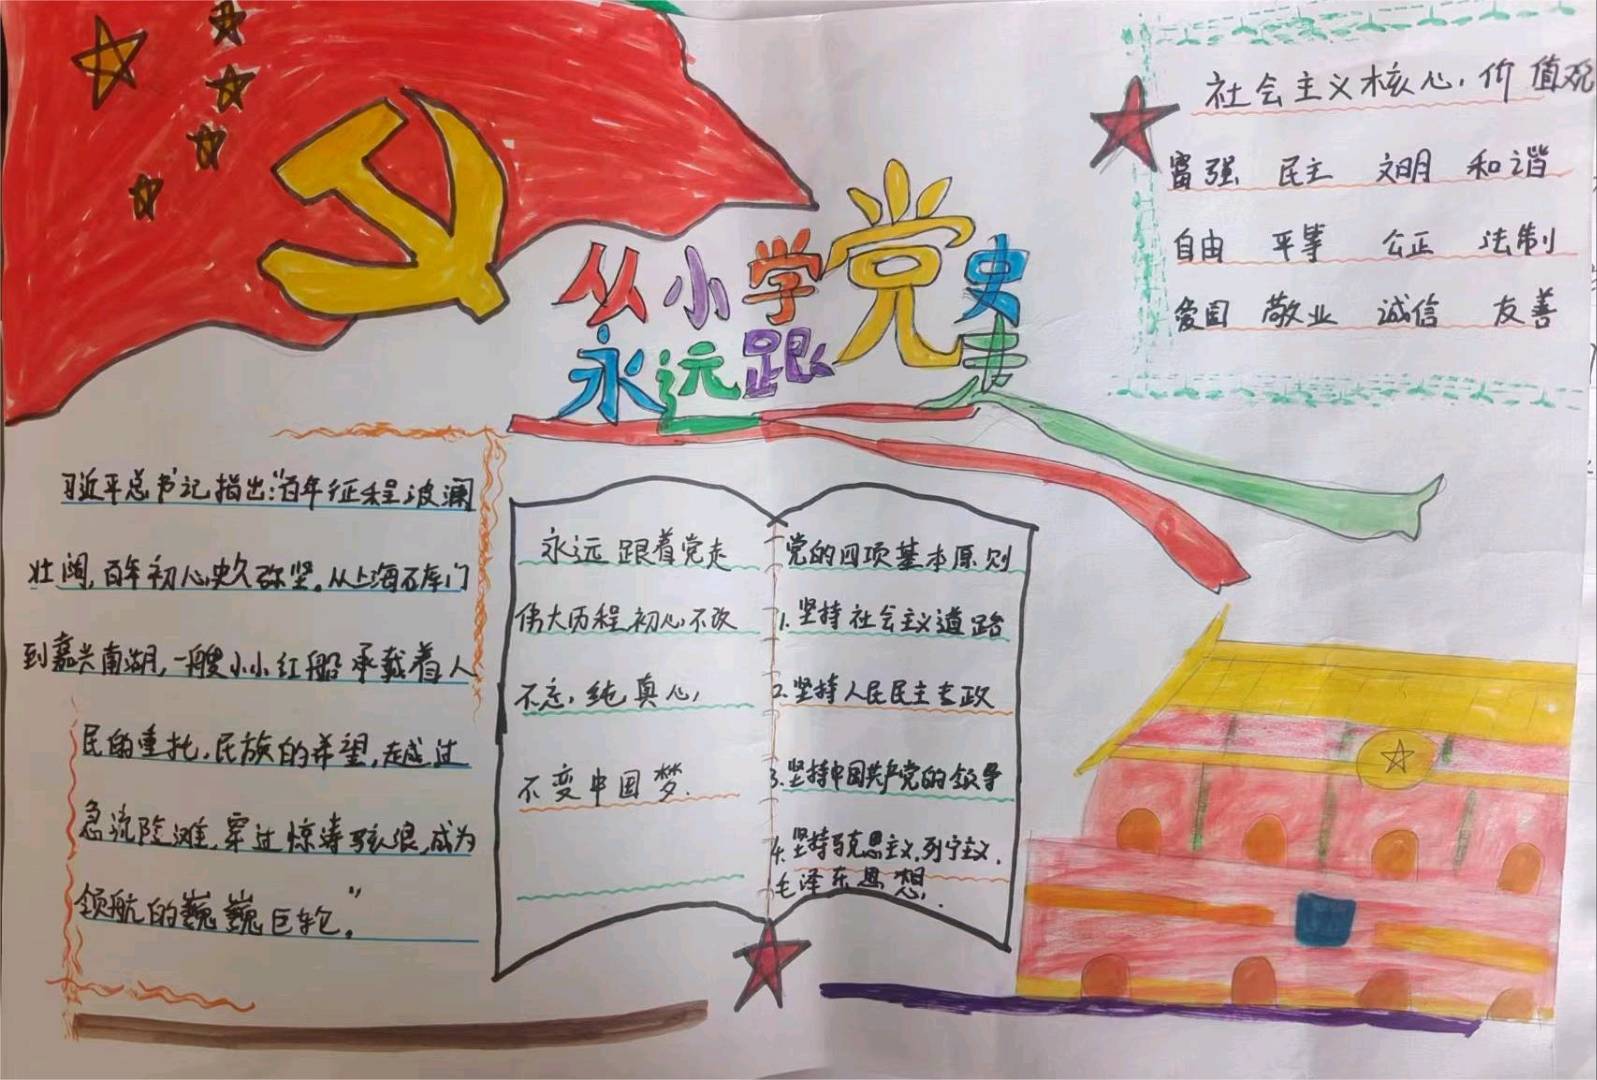 从小学党史
永远跟党走
社会主义核心价值观
富强 民主 文明 和谐
自由 平等 公正 法制
爱国 敬业 诚信 友善
习近平总书记指出:“百年征程波澜
壮阔,百年初心历久弥坚。从上海石库门
到嘉兴南湖,一艘小小红船承载着人
民的重托,民族的希望,越过
急流险滩,穿过惊涛骇浪,成为
领航的巍巍巨轮。”
永远跟着党走
伟大历程初心不改
不忘,纯真心,
不变中国梦.
党的四项基本原则
1.坚持社会主义道路
2.坚持人民民主专政
3.坚持中国共产党的领导
4.坚持马克思主义,列宁主义.
毛泽东思想.